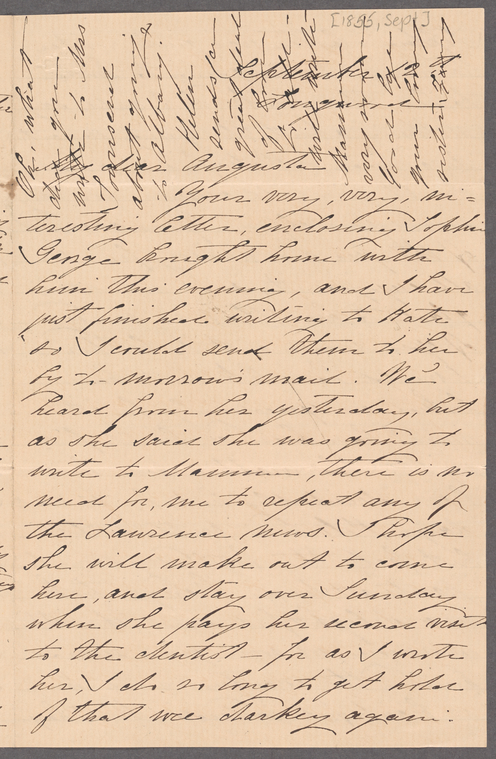 [1855, Sept]
September 10th
Longwood
My dear Augusta
Your very, very, in=
teresting letter, enclosing Sophia
George brought home with
him this evening, and I have
just finished writing to Kate
so I could send them to her
by to-morrow's mail. We
heard from her yesterday, but
as she said she was going to
write to Mamma, there is no
need for me to repeat any of
the Lawrence news. I hope
she will make out to come
here, and stay over Sunday
when she pays her second visit
to the dentist - for as I wrote
her, I do so long to get hold
of that wee darkey again.
Oh, what
did you
write to Mrs
Townsend
about going
to Albany.
Helen
sends a
great deal
of
love
will write
Mamma
very
love
your
sister Fanny